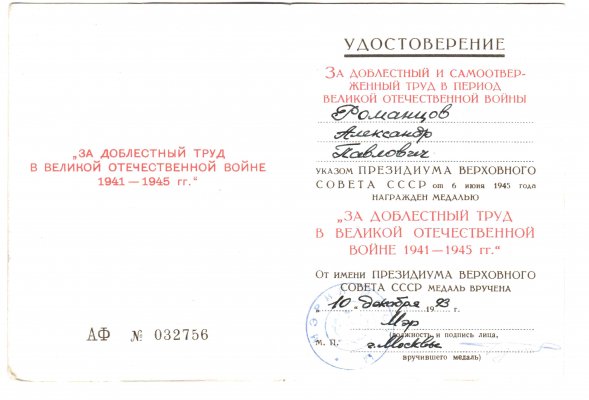 „ЗА ДОБЛЕСТНЫЙ ТРУД
В ВЕЛИКОЙ ОТЕЧЕСТВЕННОЙ ВОЙНЕ
1941 — 1945 гг.“
АФ № 032756
УДОСТОВЕРЕНИЕ
ЗА ДОБЛЕСТНЫЙ И САМООТВЕР-
ЖЕННЫЙ ТРУД В ПЕРИОД
ВЕЛИКОЙ ОТЕЧЕСТВЕННОЙ ВОЙНЫ
Романцов
Александр
Павлович
УКАЗОМ ПРЕЗИДИУМА ВЕРХОВНОГО
СОВЕТА СССР от 6 июня 1945 года
НАГРАЖДЕН МЕДАЛЬЮ
„ЗА ДОБЛЕСТНЫЙ ТРУД
В ВЕЛИКОЙ ОТЕЧЕСТВЕННОЙ
ВОЙНЕ 1941—1945 гг.“
От имени ПРЕЗИДИУМА ВЕРХОВНОГО
СОВЕТА СССР МЕДАЛЬ ВРУЧЕНА
„10„ декабря 1993 г.
Мэр
(должность и подпись лица,
М. П. г. Москвы
вручившего медаль)